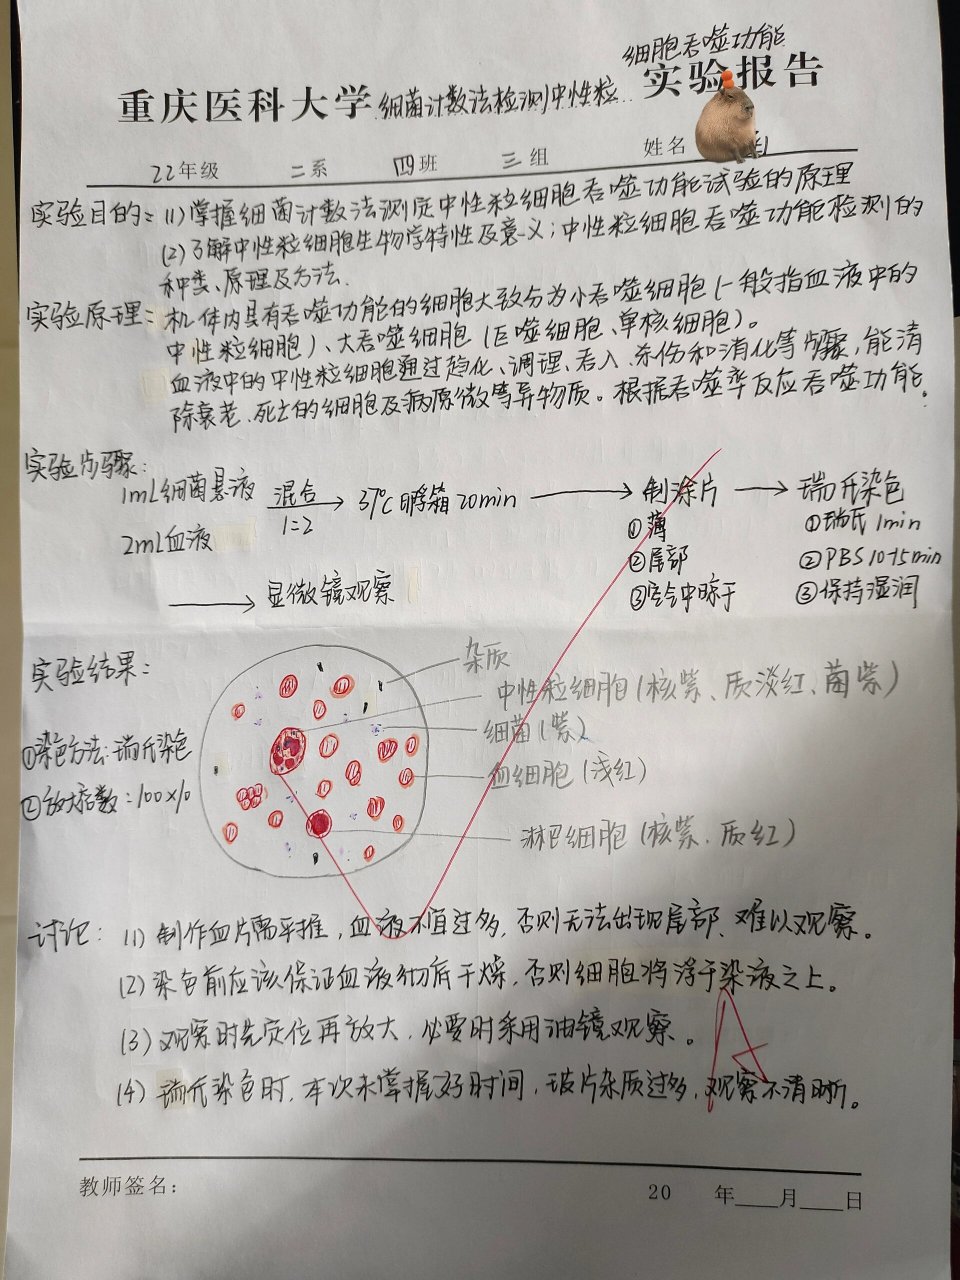 细胞吞噬功能
重庆医科大学 细菌计数法检测中性粒 实验报告
22年级 二系 四班 三组 姓名
实验目的: (1)掌握细菌计数法测定中性粒细胞吞噬功能试验的原理
(2)了解中性粒细胞生物学特性及意义;中性粒细胞吞噬功能检测的
种类、原理及方法.
实验原理: 机体内具有吞噬功能的细胞大致分为小吞噬细胞(一般指血液中的
中性粒细胞)、大吞噬细胞(巨噬细胞、单核细胞)。
血液中的中性粒细胞通过趋化、调理、吞入、杀伤和消化等步骤,能清
除衰老、死亡的细胞及病原微等异物质。根据吞噬率反应吞噬功能.
实验步骤:
1mL细菌悬液 混合 → 37℃孵箱20min → 制涂片 → 瑞氏染色
2mL血液 1:2 ①薄 ①瑞氏1min
②尾部 ②PBS10-15min
→ 显微镜观察 ③空气中晾干 ③保持湿润
实验结果:
杂质
中性粒细胞(核紫、质淡红、菌紫)
细菌(紫)
①染色方法:瑞氏染色
血细胞(浅红)
②放大倍数:100×10
淋巴细胞(核紫.质红)
讨论: (1)制作血片需平推,血液不宜过多,否则无法出现尾部、难以观察。
(2)染色前应该保证血液彻底干燥,否则细胞将浮于染液之上。
(3)观察时先定位再放大,必要时采用油镜观察。
(4)瑞氏染色时,本次未掌握好时间,玻片杂质过多,观察不清晰。
A
教师签名:
20 年 月 日